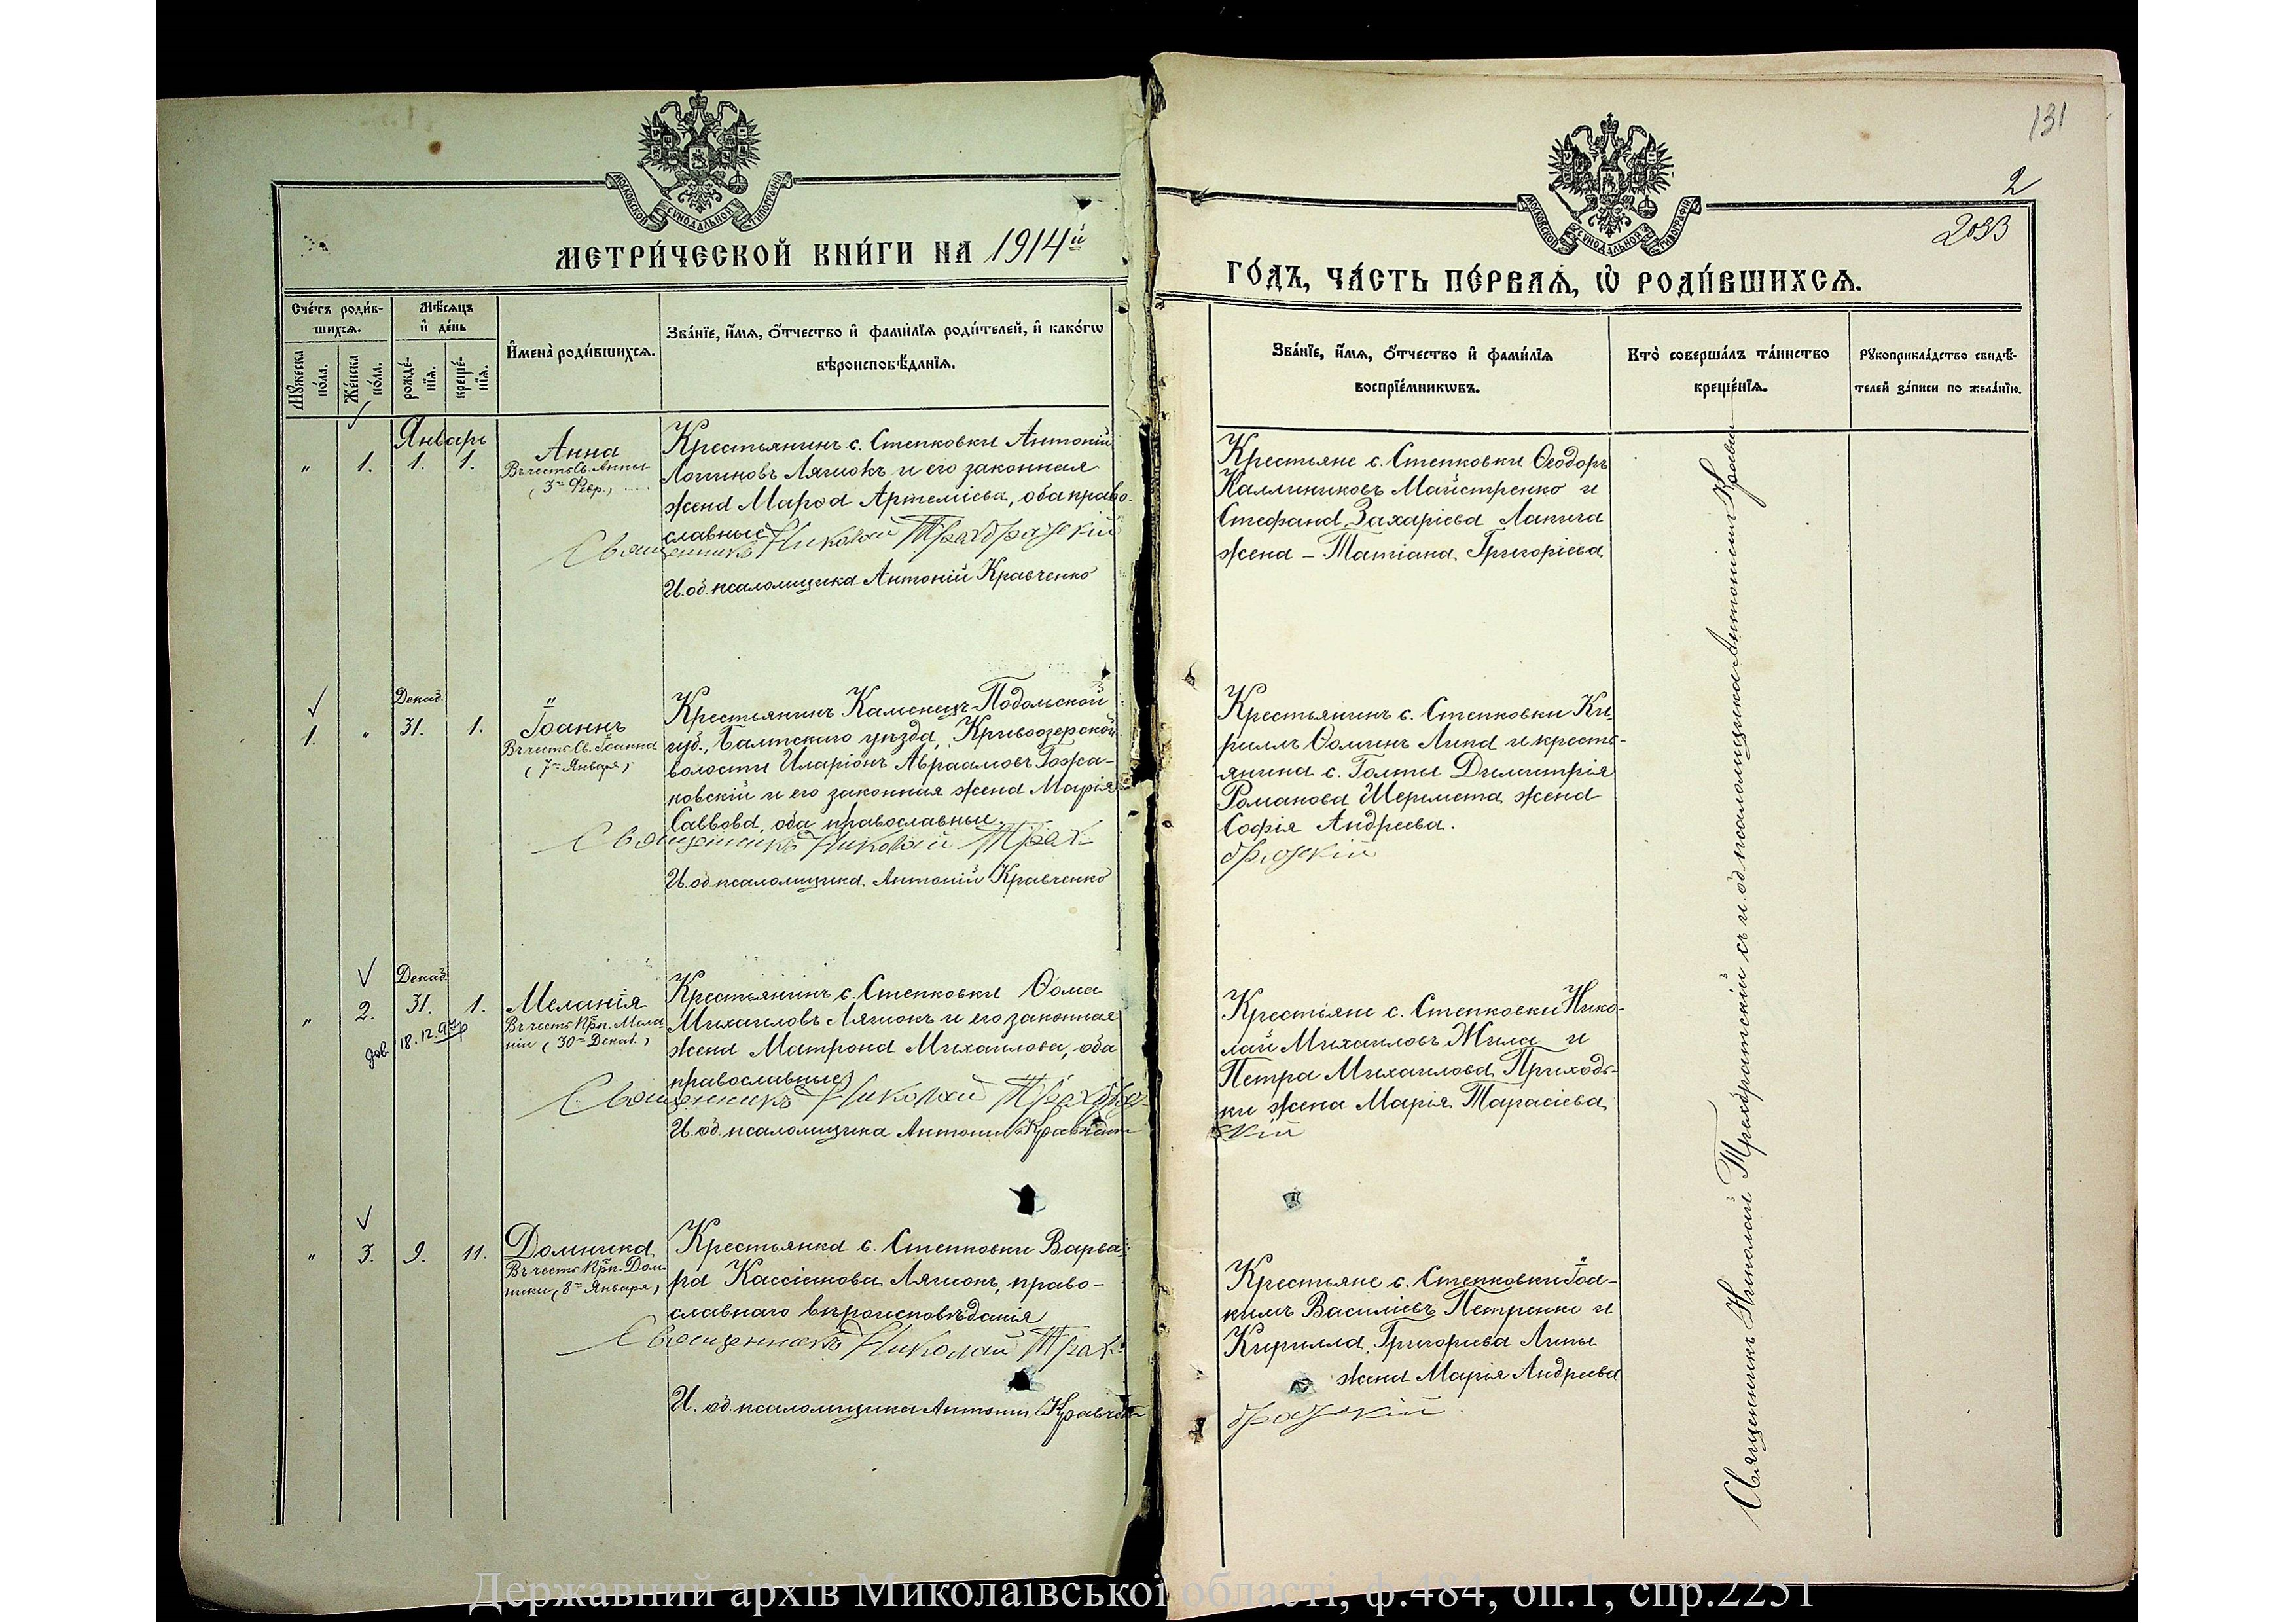 131
2
2033
МОСКОВСКОЙ СѴНОДАЛЬНОЙ ТИПОГРАФІИ
МОСКОВСКОЙ СѴНОДАЛЬНОЙ ТИПОГРАФІИ
МЕТРИ́ЧЕСКОЙ КНИ́ГИ НА 1914й
ГО́ДЪ, ЧА́СТЬ ПЕ́РВАѦ, Ѡ РОДИ́ВШИХСѦ.
Сче́тъ роди́в-
шихсѧ.
Мѣ́сѧцъ
и де́нь
Мꙋ́жеска по́ла.
Же́нска по́ла.
рожде́-
нїѧ.
креще́-
нїѧ.
Имена̀ роди́вшихсѧ.
Зва́нїе, и́мѧ, о́тчество и фами́лїѧ роди́телей, и како́гѡ
вѣроисповѣ́данїѧ.
Зва́нїе, и́мѧ, о́тчество и фами́лїѧ
воспрїе́мникѡвъ.
Кто̀ соверша́лъ та́инство
креще́нїѧ.
Рꙋкоприкла́дство свидѣ́-
телей за́писи по жела́нїю.
Январь
" 1. 1. 1.
Анна
Въ честь Св. Анны
(3го Февр.)
Крестьянинъ с. Степковки Антоній
Логиновъ Ляшокъ и его законная
жена Марѳа Артеміева, оба право-
славные
Священникъ Николай
И. об. псаломщика Антоній Кравченко
Крестьяне с. Степковки Ѳеодоръ
Каллиниковъ Майстренко и
Стефана Захаріева Лапига
жена – Татіана Григоріева
Декаб.
1. " 31. 1.
Іоаннъ
Въ честь Св. Іоанна
(7го Января)
Крестьянинъ Каменецъ-Подольской
губ., Балтскаго уѣзда, Кривоозерской
волости Иларіонъ Авраамовъ Гожа-
ковскій и его законная жена Марія
Саввова, оба православные.
Священникъ Николай
И. об. псаломщика Антоній Кравченко
Крестьянинъ с. Степковки Ки-
риллъ Ѳоминъ Липа и кресть-
янина с. Голты Димитрія
Романова Шеремета жена
Софія Андреева.
Декаб.
" 2. 31. 1.
18.12.
Меланія
Въ честь Прп. Мела-
ніи (30го Декаб.)
Крестьянинъ с. Степковки Ѳома
Михаиловъ Ляшокъ и его законная
жена Матрона Михаилова, оба
православные
Священникъ Николай
И. об. псаломщика Антоній Кравченко
Крестьяне с. Степковки Нико-
лай Михаиловъ Жила и
Петра Михаилова Приходь-
ки жена Марія Тарасіева
скій
" 3. 9. 11.
Домника
Въ честь Прп. Дом-
ники (8го Января)
Крестьянка с. Степковки Варва-
ра Кассіанова Ляшокъ, право-
славнаго вѣроисповѣданія
Священникъ Николай
И. об. псаломщика Антоній Кравченко
Крестьяне с. Степковки Іоа-
кимъ Василіевъ Петренко и
Кирилла Григорьева Липы
жена Марія Андреева
Священникъ Николай съ и. об. псаломщика Антоніемъ
Державний архів Миколаївської області, ф.484, оп.1, спр.2251